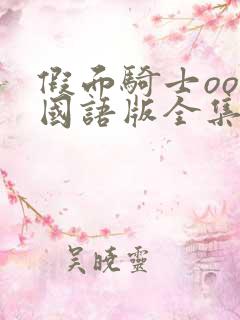 假面騎士oo
國語版全集
吴曉靈